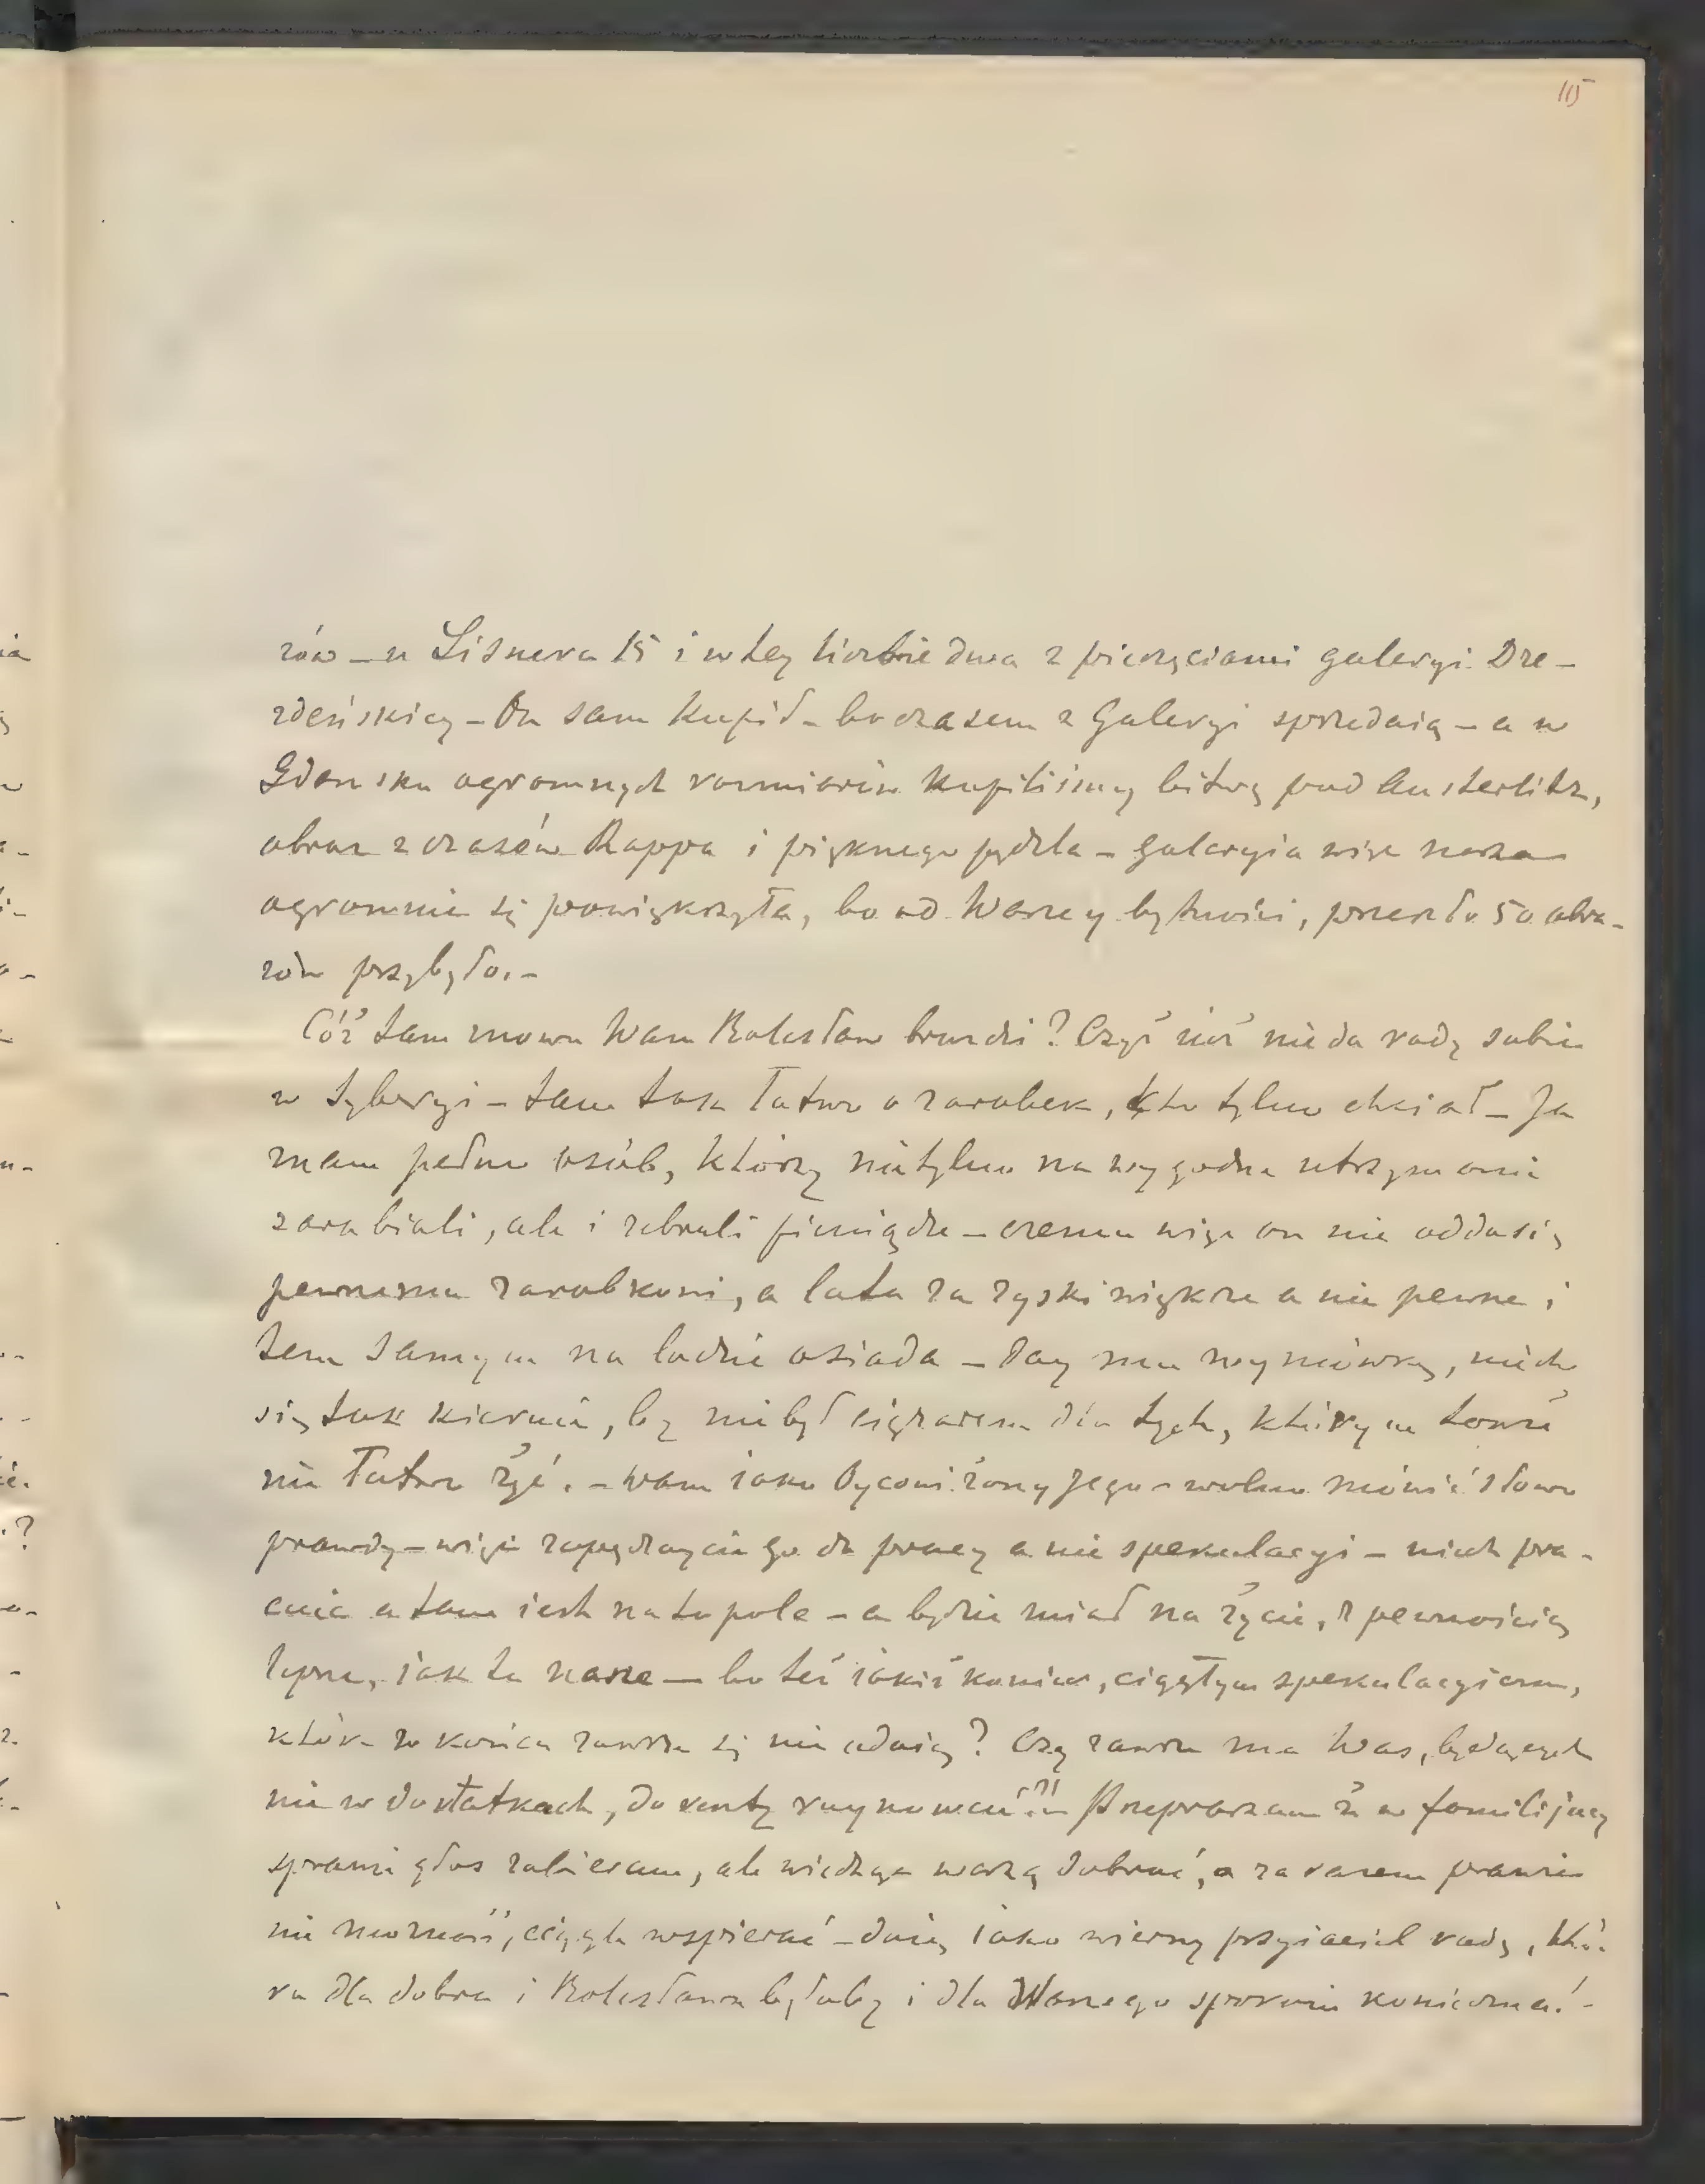 115
zów – u Lisnera 15 i w tey liczbie dwa z pieczęciami galeryi Dre-
zdeńskiey – On sam kupił – bo czasem z Galeryi sprzedaią – a w
Gdansku ogromnych rozmiarów kupiliśmy bitwę pod Austerlitz,
obraz z czasów Rappa i pięknego pędzla – galeryia więc nasza
ogromnie się powiększyła, bo od Waszey bytności, przeszło 50 obra-
zów przybyło. –
Cóż tam znowu Wam Bolesław bruździ? Czyż iuż nie da rady sobie
w Syberyi – tam tak łatwo o zarobek, kto tylko chciał – Ja
znam pełno osób, którzy nietylko na wygodne utrzymanie
zarabiali, ale i zebrali pieniądze – czemu więc on nie odda się
pewnemu zarobkowi, a lata za zyski większe a nie pewne i
tem samym na lodzie osiada – Day mu wymówkę, niech
się tak kieruie, by nie był ciężarem dla tych, którym towże
nie łatwo żyć. – Wam iako Oycowi żony Jego – wolno mówić słowo
prawdy – więc zapędzaycie go do pracy a nie spekulacyi – niech pra-
cuie a tam iest na to pole – a będzie miał na życie, z pewnością
lepsze, iak te nasze – bo też iakiż koniec, ciągłym spekulacyiom,
które w końcu zawsze się nie udaią? Czy zawsze ma Was, będących
nie w dostatkach, do reszty ruynować?!! – Przepraszam że w familijney
sprawie głos zabieram, ale widząc waszą dobroć, a zarazem prawie
nie możność, ciągle wspierać – daię iako wierny przyiaciel radę, któ-
ra dla dobra i Bolesława byłaby i dla Waszego spokoiu konieczna! –